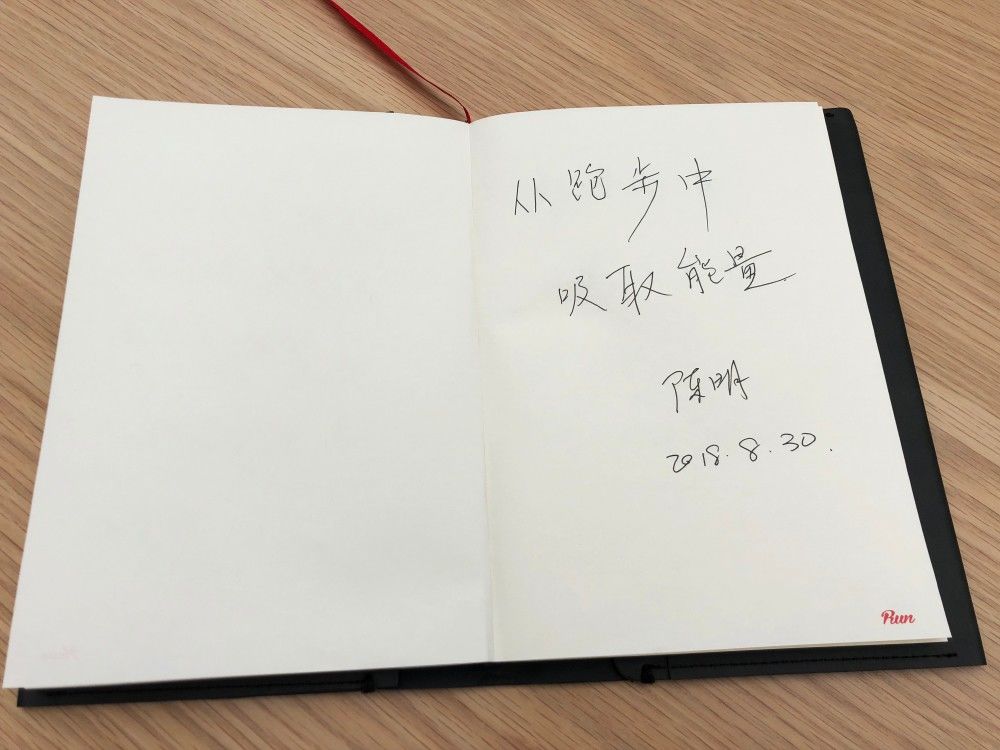 从跑步中
吸取能量
陈明
2018.8.30.
Run